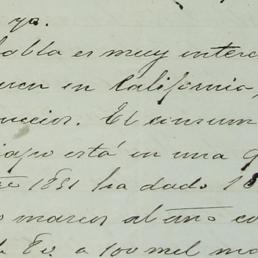 ya.
habla es muy interc
en California,
El consum
iapo está en una g
1851 ha dado 18
marcos al año co
a 100 mil ma